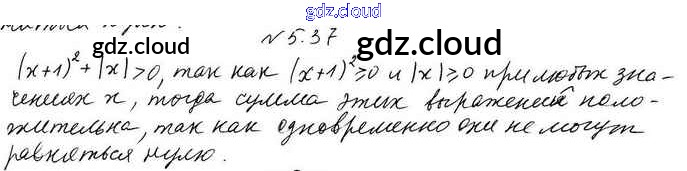 gdz.cool
№5.37
gdz.cool gdz.cool
(x+1)²+|x|>0, так как (x+1)²≥0 и |x|≥0 при любых зна-
чениях x, тогда сумма этих выражений поло-
жительна, так как одновременно они не могут
равняться нулю.